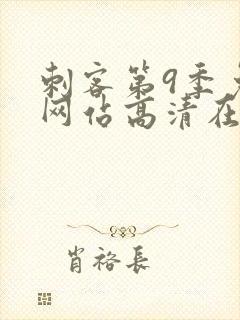 刺客第9季
网佔高清在
肖裕長